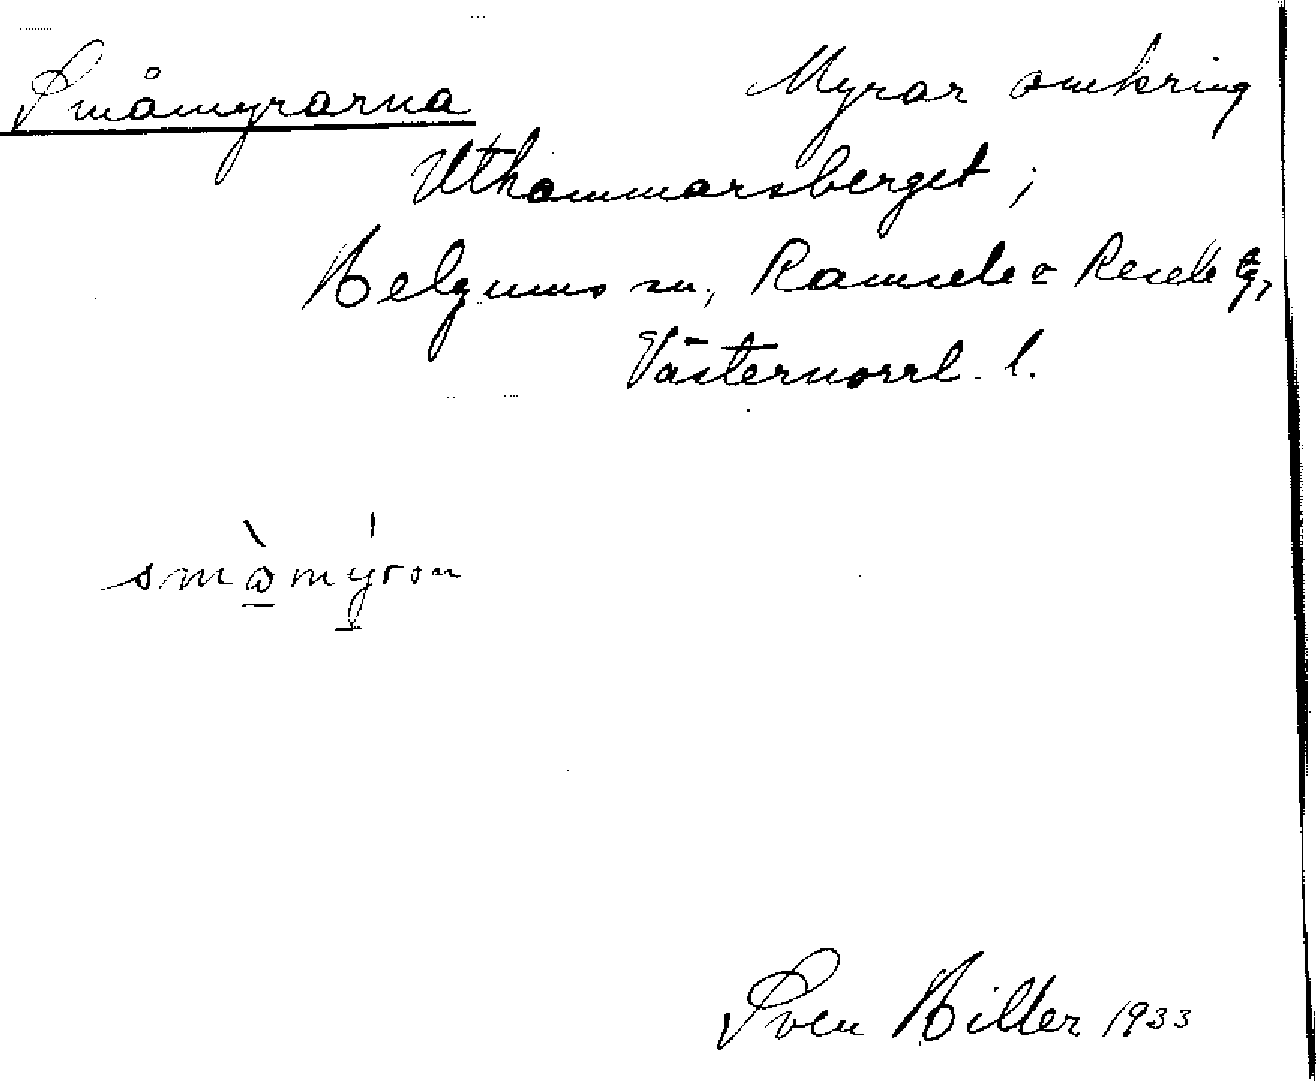 Småmyrarna Myrar omkring
Uthammarsberget;
Helgums sn, Ramsele o Resele tg,
Västernorrl. l.
småmyron
Sven Hiller 1933